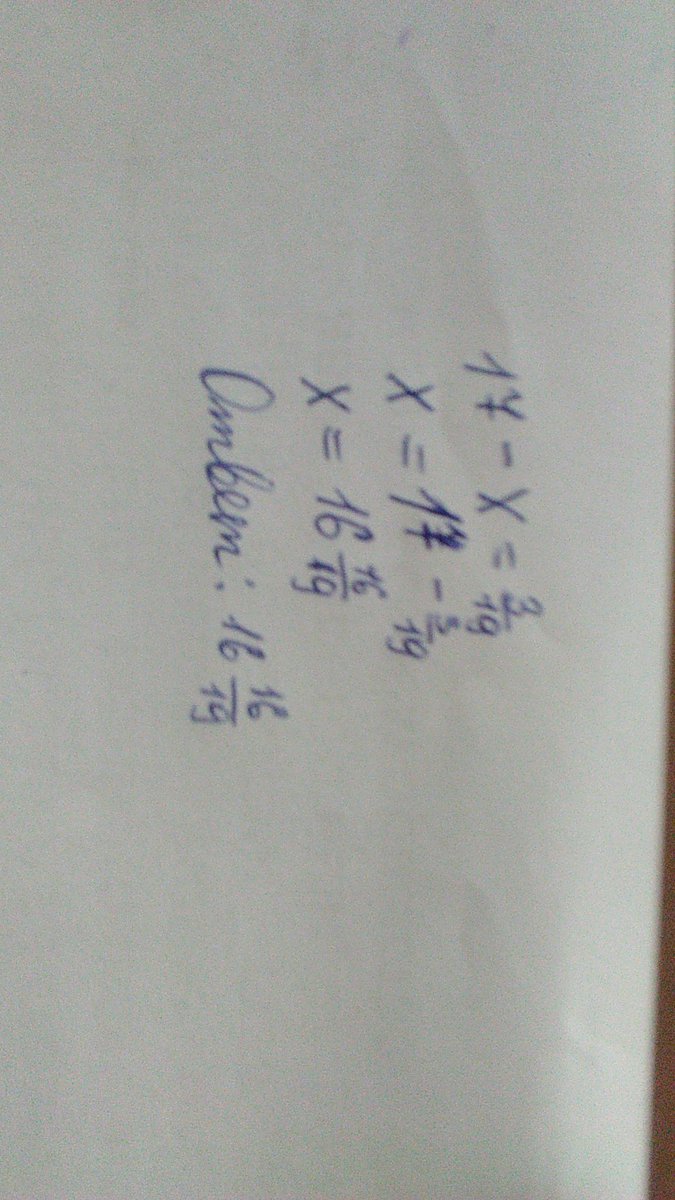 17 - x = 3/19
x = 17 - 3/19
x = 16 16/19
Ответ: 16 16/19